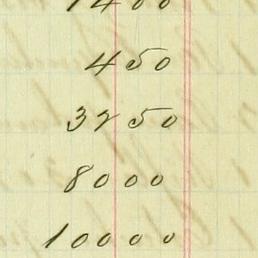 1400
450
3250
8000
10000